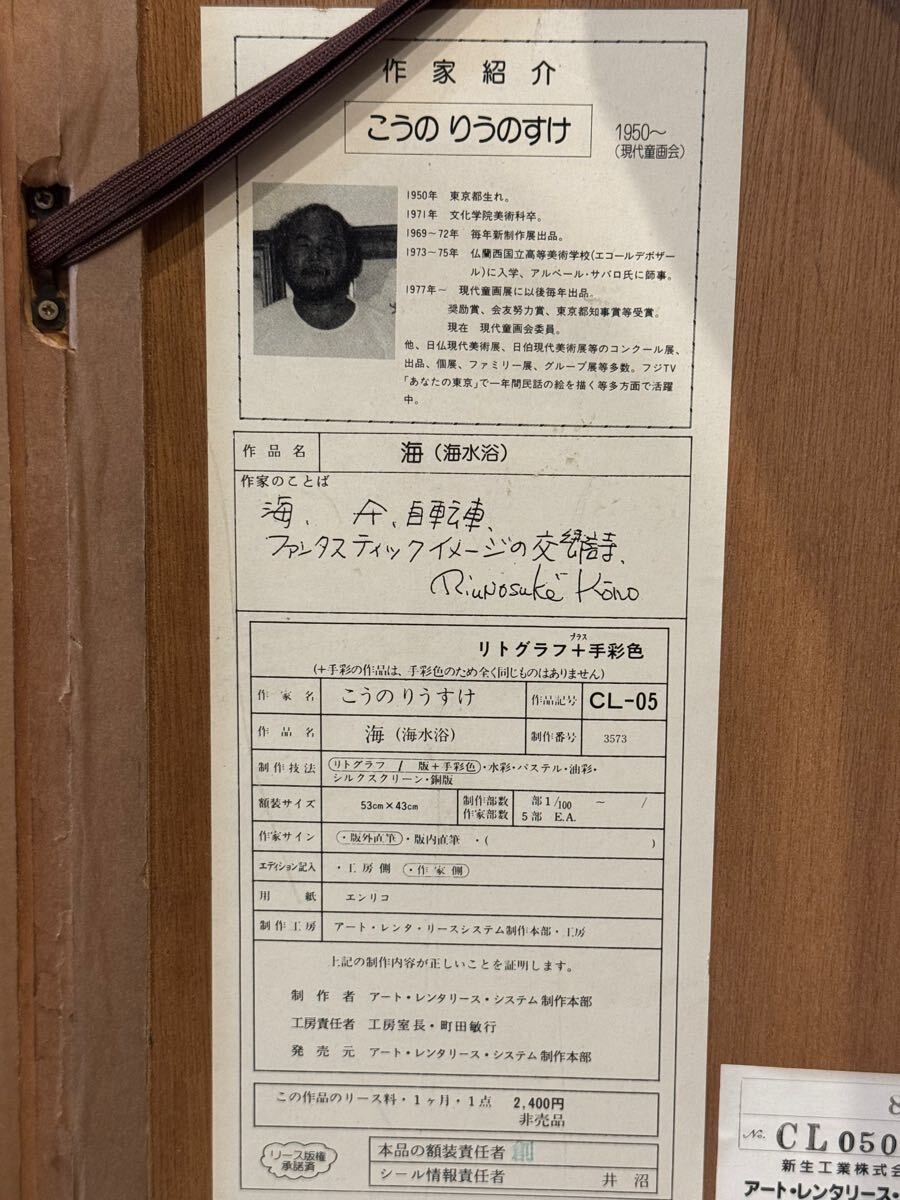 作家紹介
こうの りうのすけ
1950～
(現代童画会)
1950年 東京都生れ。
1971年 文化学院美術科卒。
1969～72年 毎年新制作展出品。
1973～75年 仏蘭西国立高等美術学校(エコールデボザー
ル)に入学、アルベール・サバロ氏に師事。
1977年～ 現代童画展に以後毎年出品。
奨励賞、会友努力賞、東京都知事賞等受賞。
現在 現代童画会委員。
他、日仏現代美術展、日伯現代美術展等のコンクール展、
出品、個展、ファミリー展、グループ展等多数。フジTV
「あなたの東京」で一年間民話の絵を描く等多方面で活躍
中。
作品名 海(海水浴)
作家のことば
海、 自転車、
ファンタスティックイメージの交響詩、
Riunosuké Kōno
プラス
リトグラフ+手彩色
(+手彩の作品は、手彩色のため全く同じものはありません)
作家名 こうの りうすけ 作品記号 CL-05
作品名 海(海水浴) 制作番号 3573
制作技法 リトグラフ / 版+手彩色・水彩・パステル・油彩・
シルクスクリーン・銅版
額装サイズ 53cm×43cm 制作部数 部1/100 ～ /
作家部数 5部 E.A.
作家サイン ・版外直筆・版内直筆 ・( )
エディション記入 ・工房側 ・作家側
用紙 エンリコ
制作工房 アート・レンタ・リースシステム制作本部・工房
上記の制作内容が正しいことを証明します。
制作者 アート・レンタリース・システム制作本部
工房責任者 工房室長・町田敏行
発売元 アート・レンタリース・システム制作本部
この作品のリース料・1ヶ月・1点 2,400円
非売品
リース版権
承諾済
本品の額装責任者 創
シール情報責任者 井沼
8
No. CL050
新生工業株式会
アート・レンタリース・